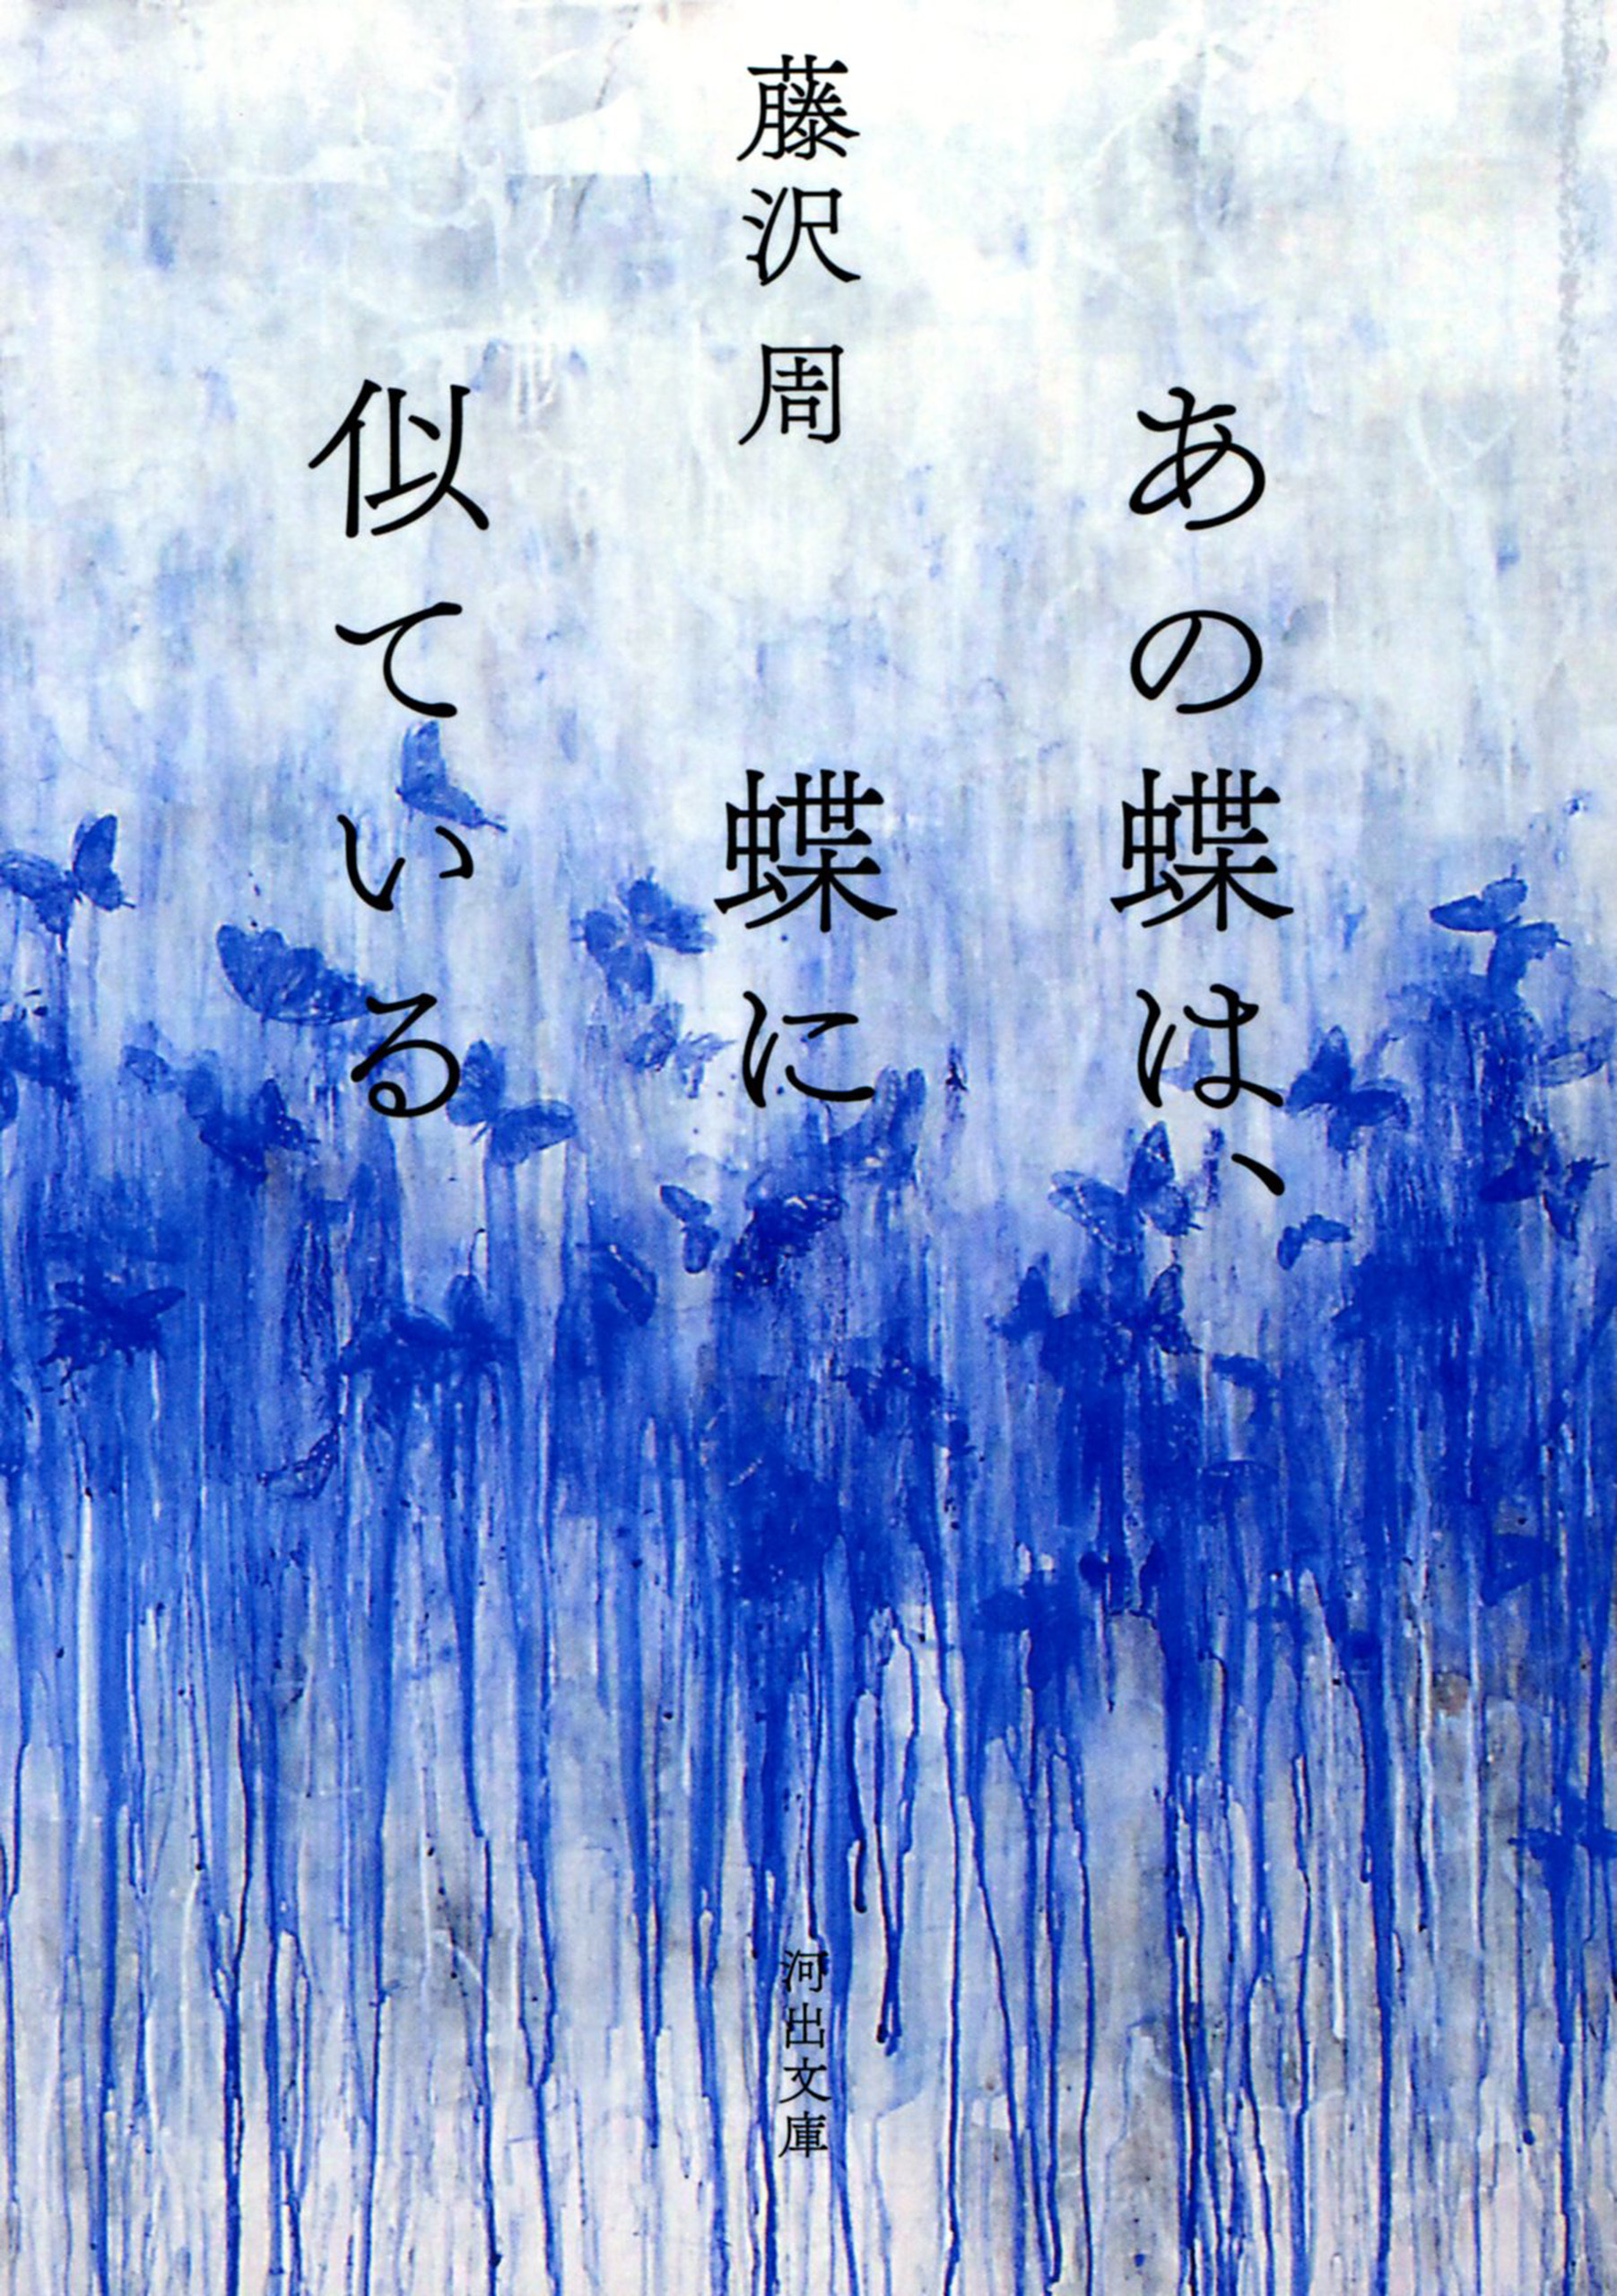 藤沢周
あの蝶は、
蝶に
似ている
河出文庫